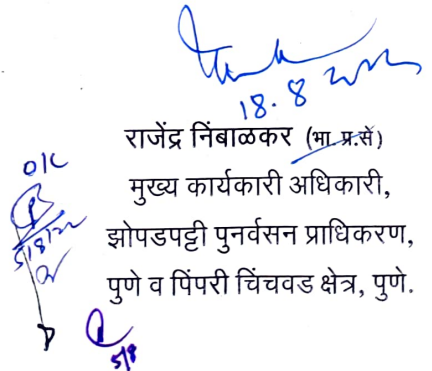 18.8.2022
राजेंद्र निंबाळकर (भा.प्र.से)
मुख्य कार्यकारी अधिकारी,
झोपडपट्टी पुनर्वसन प्राधिकरण,
पुणे व पिंपरी चिंचवड क्षेत्र, पुणे.
O/C
5/8/22
5/8